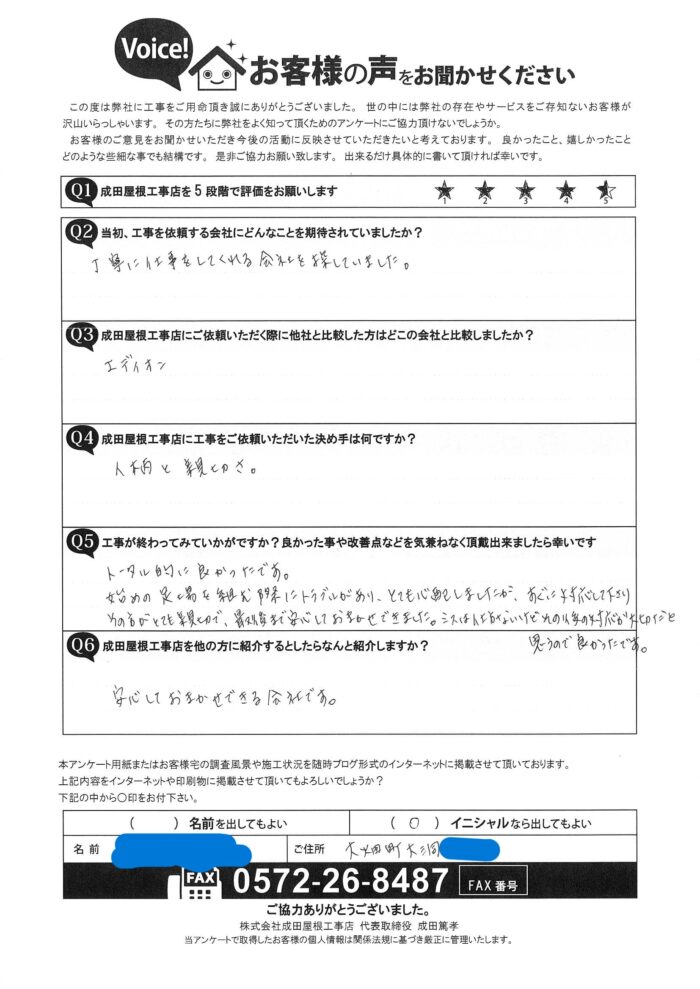 Voice!
お客様の声をお聞かせください
この度は弊社に工事をご用命頂き誠にありがとうございました。 世の中には弊社の存在やサービスをご存知ないお客様が
沢山いらっしゃいます。 その方たちに弊社をよく知って頂くためのアンケートにご協力頂けないでしょうか。
お客様のご意見をお聞かせいただき今後の活動に反映させていただきたいと考えております。 良かったこと、嬉しかったこと
どのような些細な事でも結構です。 是非ご協力お願い致します。 出来るだけ具体的に書いて頂ければ幸いです。
Q1 成田屋根工事店を5段階で評価をお願いします
1 2 3 4 5
Q2 当初、工事を依頼する会社にどんなことを期待されていましたか?
丁寧に仕事をしてくれる会社を探していました。
Q3 成田屋根工事店にご依頼いただく際に他社と比較した方はどこの会社と比較しましたか?
エディオン
Q4 成田屋根工事店に工事をご依頼いただいた決め手は何ですか?
人柄と親切さ。
Q5 工事が終わってみていかがですか?良かった事や改善点などを気兼ねなく頂戴出来ましたら幸いです
トータル的に良かったです。
始めの足場を組む際にトラブルがあり、とても心配しましたが、すぐに対応して下さり
その方がとても親切で、最後まで安心しておまかせできました。ミスは仕方ないけどその後の対応が大切だと
思うので良かったです。
Q6 成田屋根工事店を他の方に紹介するとしたらなんと紹介しますか?
安心しておまかせできる会社です。
本アンケート用紙またはお客様宅の調査風景や施工状況を随時ブログ形式のインターネットに掲載させて頂いております。
上記内容をインターネットや印刷物に掲載させて頂いてもよろしいでしょうか?
下記の中から〇印をお付下さい。
( ) 名前を出してもよい ( 〇 ) イニシャルなら出してもよい
名前 ご住所 大畑町大洞
FAX 0572-26-8487 FAX 番号
ご協力ありがとうございました。
株式会社成田屋根工事店 代表取締役 成田篤孝
当アンケートで取得したお客様の個人情報は関係法規に基づき厳正に管理いたします。